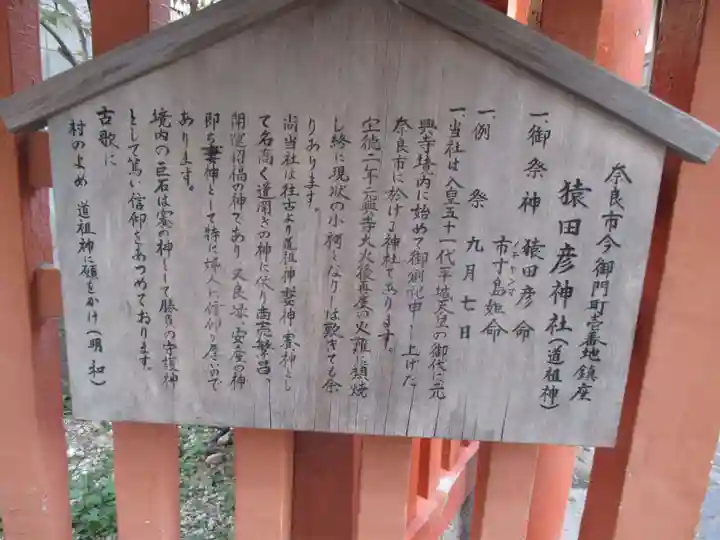 奈良市今御門町壱番地鎮座
猿田彦神社(道祖神)
一、御祭神 猿田彦命
市寸島姫命
イチキシマ
一、例祭 九月七日
一、当社は人皇五十一代平城天皇の御代に元
興寺境内に始めて御創祀申し上げた
奈良市に於ける神社であります。
宝徳二年元興寺大火後再度の火難に類焼
し終に現状の小祠となりしは歎きても余
りあります。
尚当社は往古より道祖神妻神賽神とし
て名高く道開きの神に依り商売繁昌、
開運招福の神であり又良縁、安産の神
即ち妻神として特に婦人に信仰が厚いので
あります。
境内の巨石は賽の神として勝負の守護神
として篤い信仰をあつめております。
古歌に
村のよめ 道祖神に願をかけ(明和)